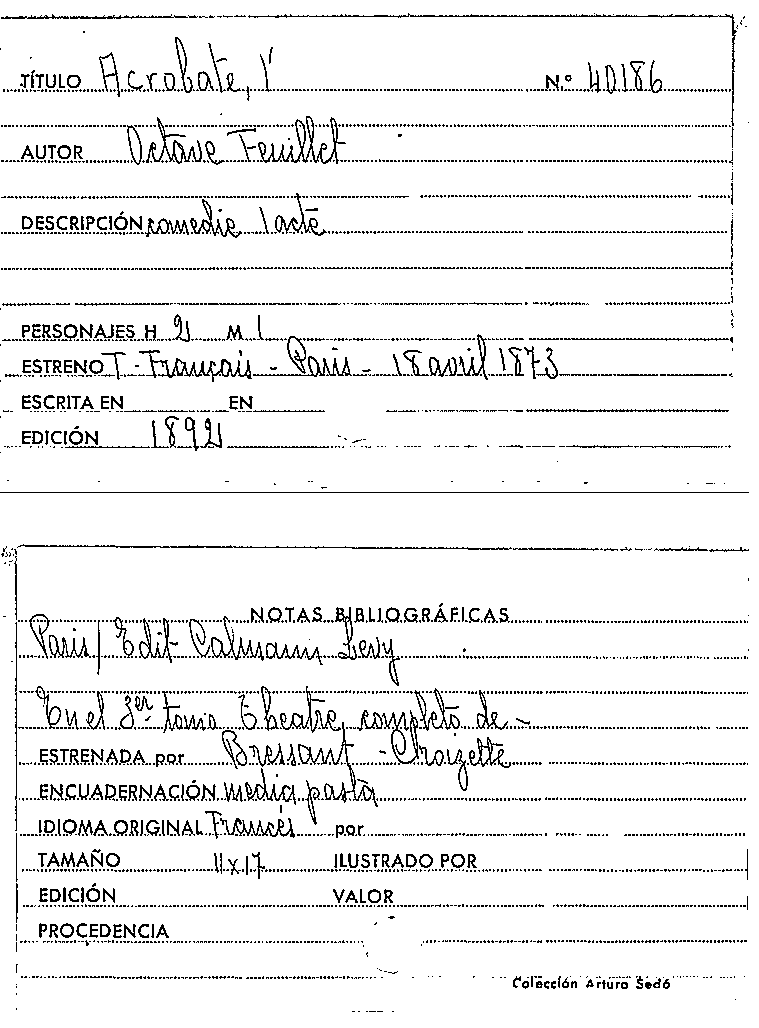 TÍTULO Acrobate, l' N.º 40186
AUTOR Octave Feuillet
DESCRIPCIÓN comedie 1 acte
PERSONAJES H 2 M 1
ESTRENO T. Français - Paris - 18 avril 1873
ESCRITA EN EN
EDICIÓN 1892
NOTAS BIBLIOGRÁFICAS
Paris / Edit Calmann Levy
En el 3er tomo Theatre completo de -
ESTRENADA por Bressant - Croizette
ENCUADERNACIÓN media pasta
IDIOMA ORIGINAL Frances por
TAMAÑO 11x17 ILUSTRADO POR
EDICIÓN VALOR
PROCEDENCIA
Colección Arturo Sedó